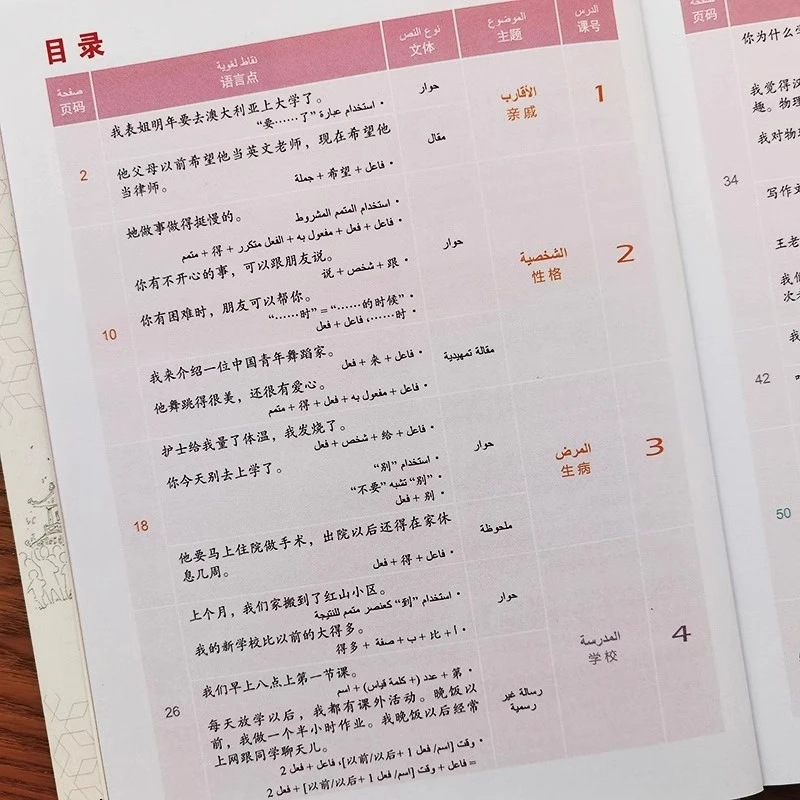 目录
الدرس
课号
الموضوع
主题
نوع النص
文体
نقاط لغوية
语言点
صفحة
页码
1
الأقارب
亲戚
حوار
我表姐明年要去澳大利亚上大学了。
• استخدام عبارة "要……了"
مقال
他父母以前希望他当英文老师，现在希望他
当律师。
• فاعل + 希望 + جملة
2
2
الشخصية
性格
حوار
她做事做得挺慢的。
• استخدام المتمم المشروط
• فاعل + فعل + مفعول به + الفعل متكرر + 得 + متمم
你有不开心的事，可以跟朋友说。
• 跟 + شخص + 说
你有困难时，朋友可以帮你。
• "……时" = "……的时候"
• ……时، فاعل + فعل
مقالة تمهيدية
我来介绍一位中国青年舞蹈家。
• فاعل + 来 + فعل
他舞跳得很美，还很有爱心。
• فاعل + مفعول به + فعل + 得 + متمم
10
3
المرض
生病
حوار
护士给我量了体温，我发烧了。
• فاعل + 给 + شخص + فعل
你今天别去上学了。
• استخدام "别"
• "别" تشبه "不要"
• 别 + فعل
ملحوظة
他要马上住院做手术，出院以后还得在家休
息几周。
• فاعل + 得 + فعل
18
4
المدرسة
学校
حوار
上个月，我们家搬到了红山小区。
• استخدام "到" كعنصر متمم للنتيجة
我的新学校比以前的大得多。
• أ + 比 + ب + صفة + 得多
رسالة غير
رسمية
我们早上八点上第一节课。
• 第 + عدد (+ كلمة قياس) + اسم
每天放学以后，我都有课外活动。晚饭以
前，我做一个半小时作业。我晚饭以后经常
上网跟同学聊天儿。
• وقت [اسم/ فعل 1 +以前/以后]، فاعل + فعل 2
= فاعل + وقت [اسم/ فعل 1 +以前/以后] + فعل 2
26
صفحة
页码
你为什么学
我觉得汉
趣。物理
我对物理
34
写作文
王老
我们
次考
42
50